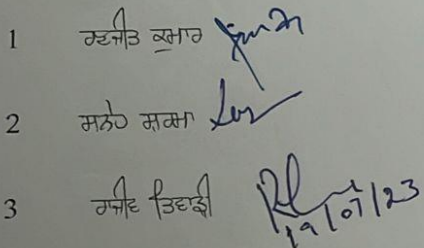 1 ਰਣਜੀਤ ਕੁਮਾਰ
2 ਸਨੇਹ ਸ਼ਰਮਾ
3 ਰਾਜੀਵ ਤਿਵਾੜੀ 19/07/23